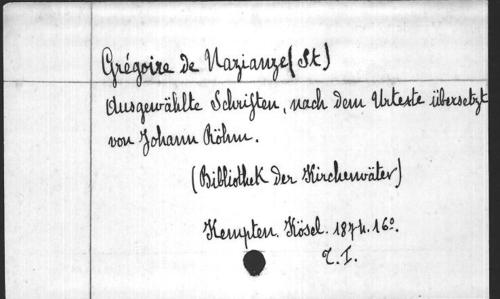 Grégoire de Nazianze (St)
Ausgewählte Schriften, nach dem Urtexte übersetzt
von Johann Röhm.
(Bibliothek der Kirchenväter)
Kempten. Kösel. 1874. 16º.
T. I.